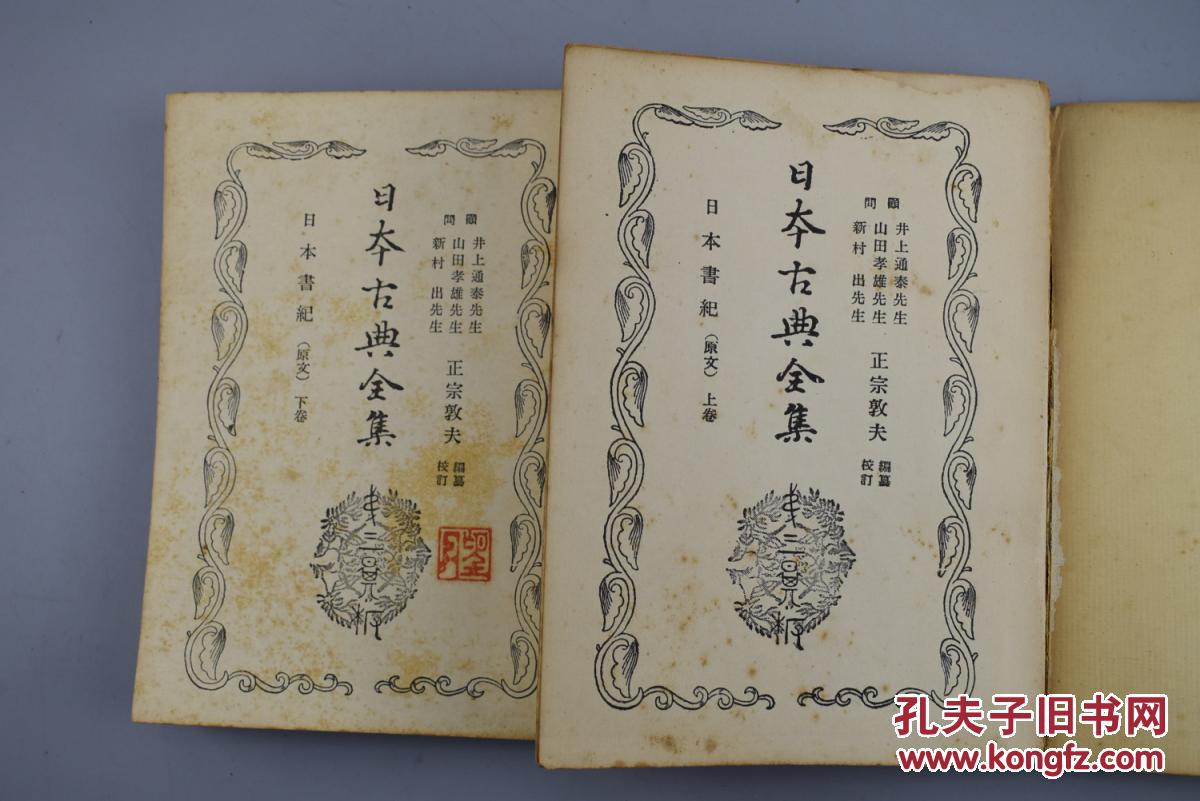 顧問
井上通泰先生
山田孝雄先生
新村 出先生
正宗敦夫
編纂
校訂
日本古典全集
日本書紀（原文）上卷
顧問
井上通泰先生
山田孝雄先生
新村 出先生
正宗敦夫
編纂
校訂
日本古典全集
日本書紀（原文）下卷
孔夫子旧书网
www.kongfz.com